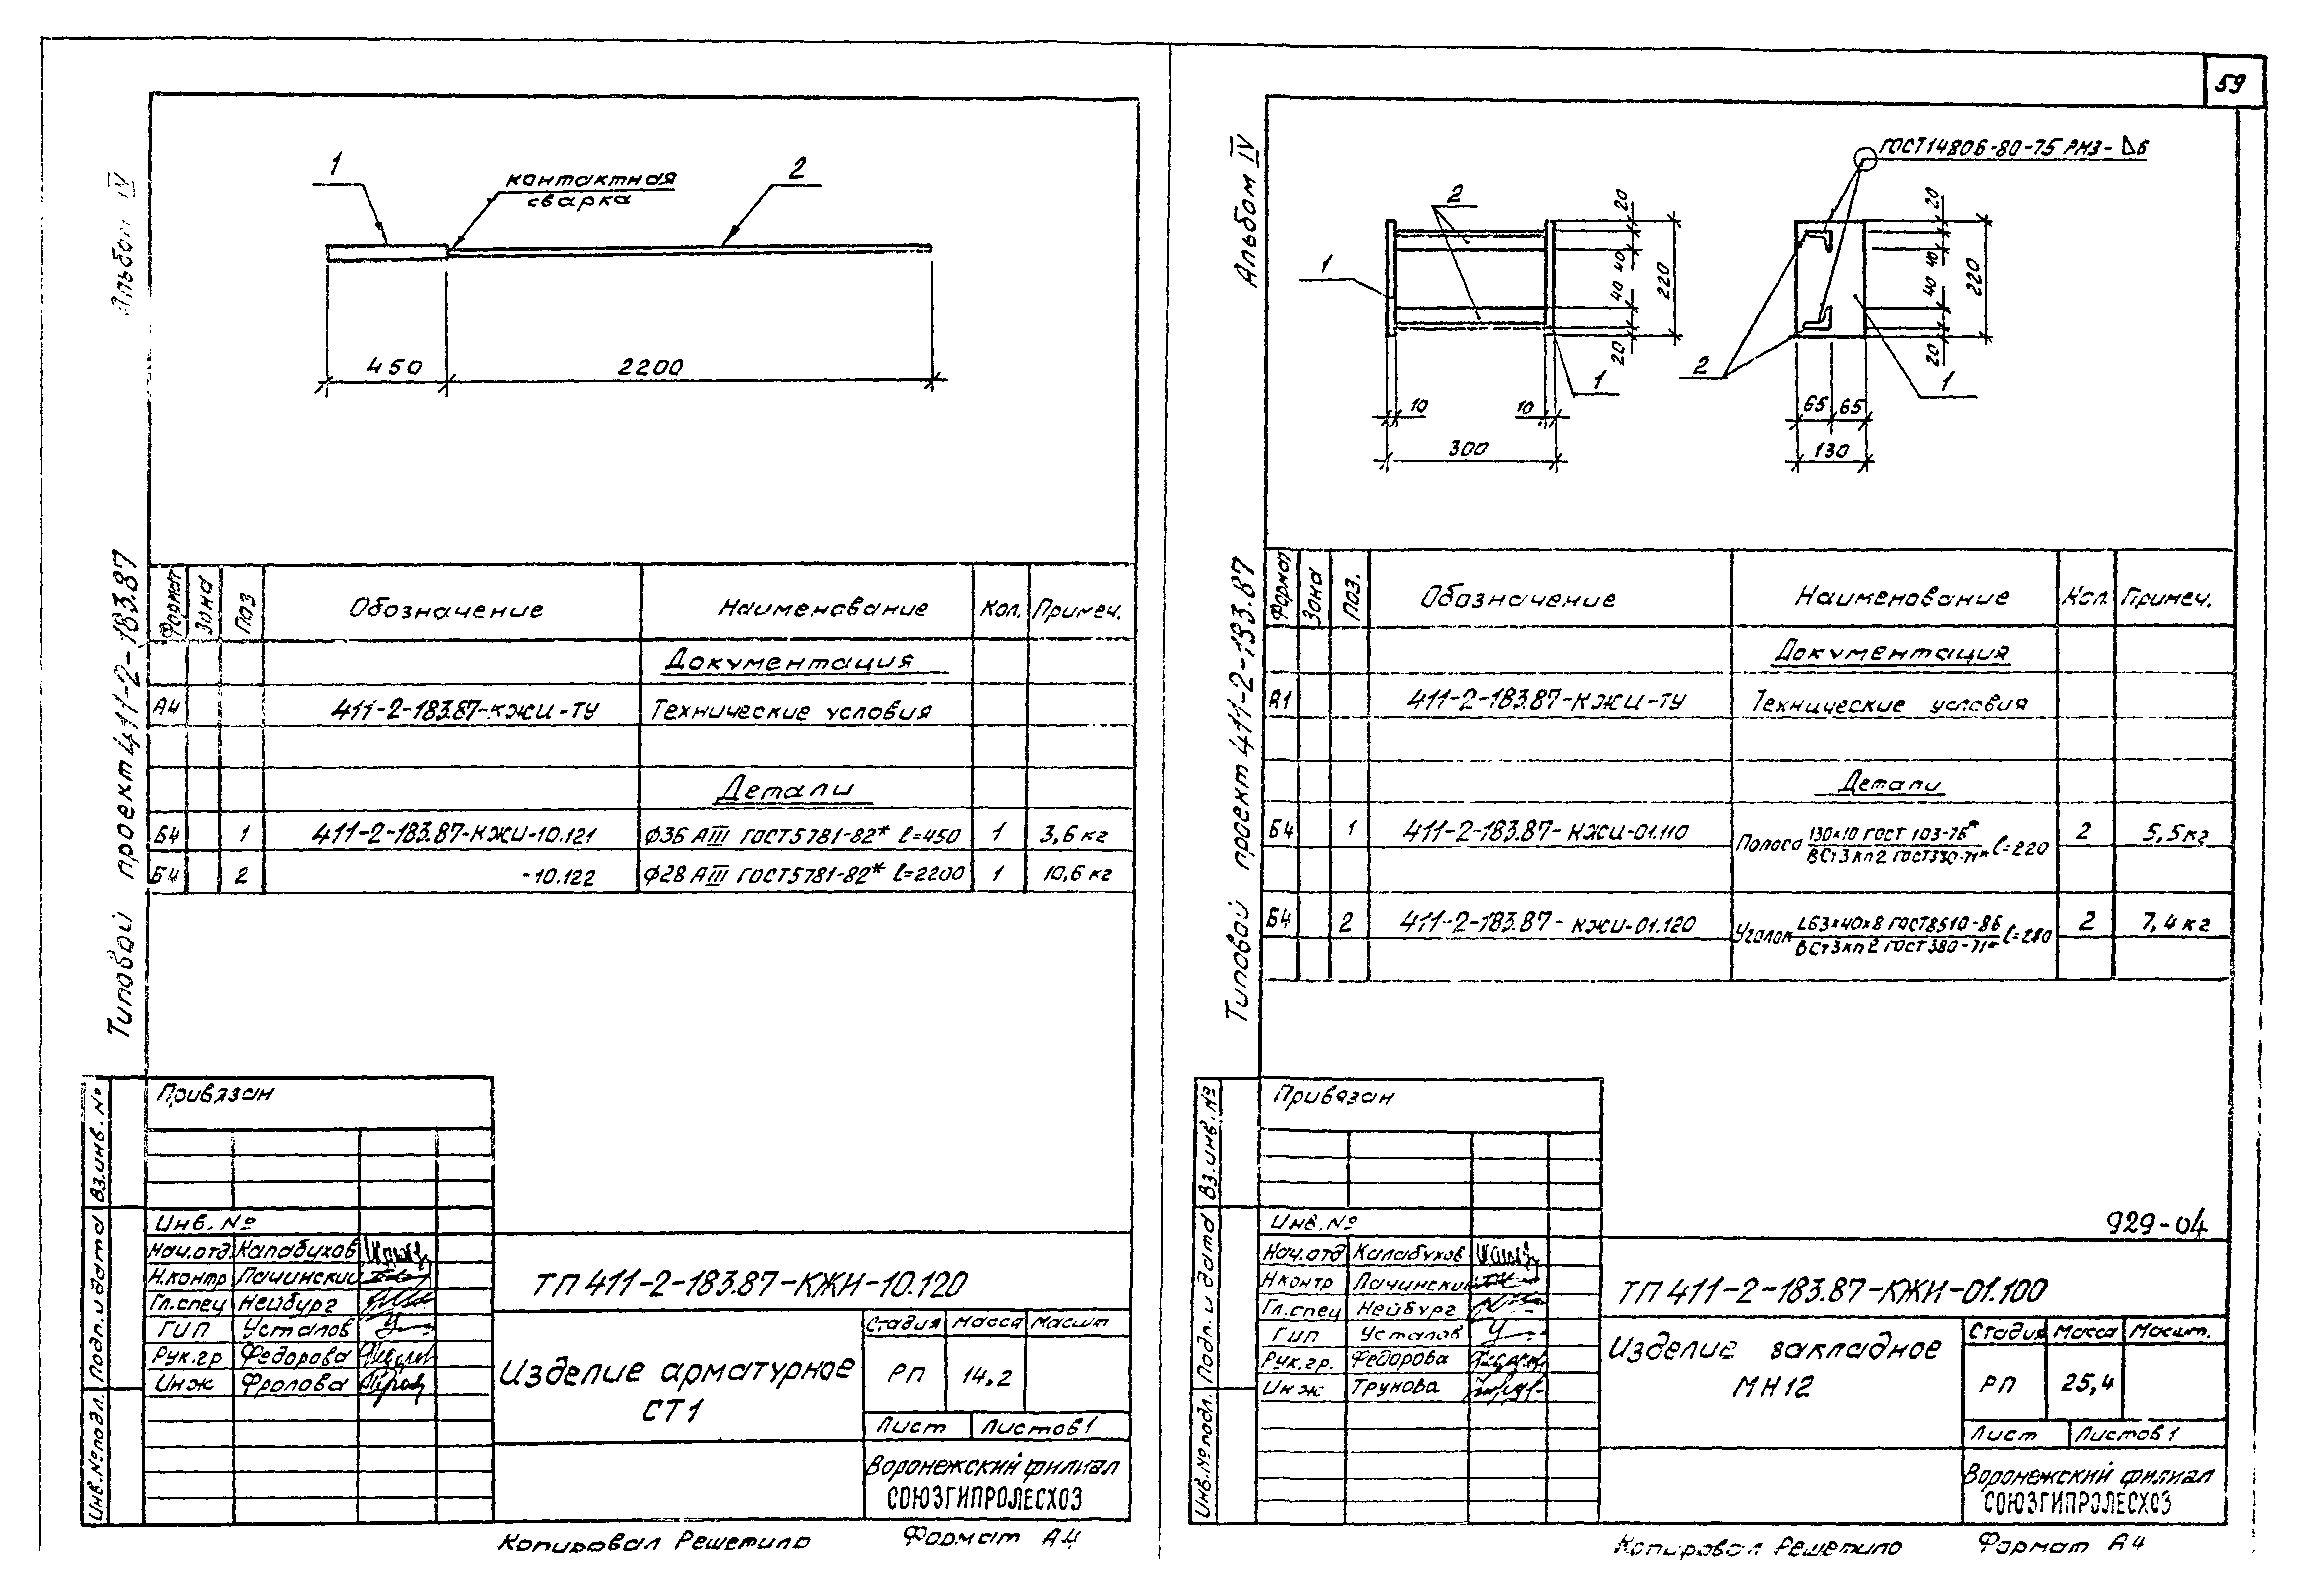 59
Альбом IV
1
контактная
сварка
2
450
2200
Типовой проект 411-2-183.87
Формат Зона Поз Обозначение Наименование Кол. Примеч.
Документация
А4 411-2-183.87-КЖИ-ТУ Технические условия
Детали
Б4 1 411-2-183.87-КЖИ-10.121 ф36 АIII ГОСТ5781-82* ℓ=450 1 3,6 кг
Б4 2 -10.122 ф28 АIII ГОСТ5781-82* ℓ=2200 1 10,6 кг
Привязан
Инв. №
Нач.отд Калабухов
Н.контр Лачинский
Гл.спец Нейбург
ГИП Усталов
Рук.гр Федорова
Инж Фролова
ТП 411-2-183.87-КЖИ-10.120
Изделие арматурное
СТ1
Стадия Масса Масшт
РП 14,2
Лист Листов 1
Воронежский филиал
СОЮЗГИПРОЛЕСХОЗ
Вз.инв.№
Подп. и дата
Инв.№подл.
Копировал Решетило Формат А4
Альбом IV
ГОСТ14806-80-Т5 РНЗ-⊿6
2
1
20
40
40
20
220
1
10
10
300
20
40
40
20
220
2
1
65 65
130
Типовой проект 411-2-183.87
Формат Зона Поз. Обозначение Наименование Кол. Примеч.
Документация
А1 411-2-183.87-КЖИ-ТУ Технические условия
Детали
Б4 1 411-2-183.87-КЖИ-01.110 Полоса 130×10 ГОСТ 103-76* ℓ=220 2 5,5кг
ВСт3кп2 ГОСТ380-71*
Б4 2 411-2-183.87-КЖИ-01.120 Уголок L63×40×8 ГОСТ8510-86 ℓ=280 2 7,4кг
ВСт3кп2 ГОСТ380-71*
Привязан
Инв.№
929-04
Нач.отд Калабухов
Н контр Лачинский
Гл.спец Нейбург
ГИП Усталов
Рук.гр. Федорова
Инж Трунова
ТП 411-2-183.87-КЖИ-01.100
Изделие закладное
МН12
Стадия Масса Масшт.
РП 25,4
Лист Листов 1
Воронежский филиал
СОЮЗГИПРОЛЕСХОЗ
Вз.инв.№
Подп. и дата
Инв.№подл.
Копировал Решетило Формат А4